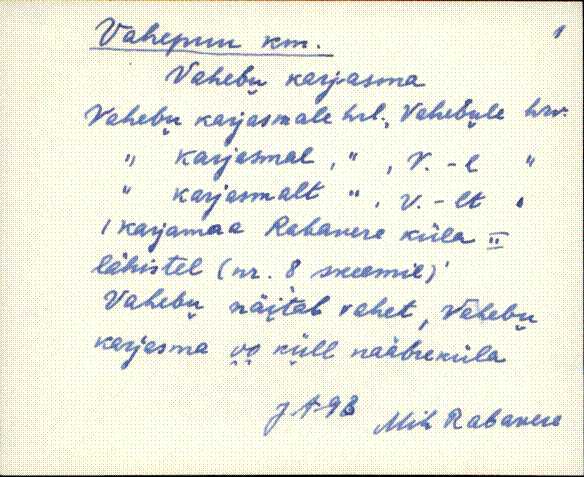 Vahepuu km. 1
Vahebu̬ karjasma
Vahebu̬ karjasmale hrl., Vahebu̬le hrv.
" karjasmal, ", V. - l "
" karjasmalt ", V. - lt "
' karjamaa Rabavere küla
lähistel (nr. 8 skeemil)'
Vahebu̬ näi̬tab vahet, Vahebu̬
karjasma o̬o̬ kü̬ll naabreküla
Mih Rabavere